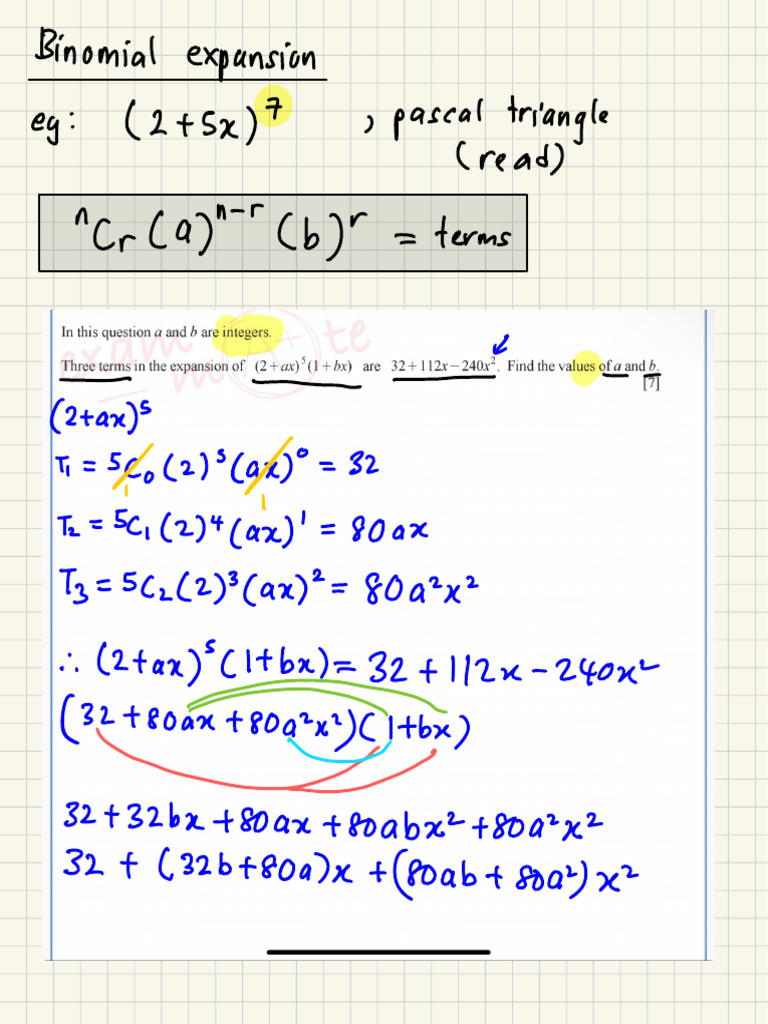 Binomial expansion
eg: (2+5x)⁷ , pascal triangle
(read)
ⁿCᵣ(a)ⁿ⁻ʳ(b)ʳ = terms
In this question a and b are integers.
exam mate
Three terms in the expansion of (2+ax)⁵(1+bx) are 32+112x−240x². Find the values of a and b.
[7]
(2+ax)⁵
T₁ = 5C₀(2)⁵(ax)⁰ = 32
1 1
T₂ = 5C₁(2)⁴(ax)¹ = 80ax
T₃ = 5C₂(2)³(ax)² = 80a²x²
∴ (2+ax)⁵(1+bx) = 32 + 112x − 240x²
(32+80ax+80a²x²)(1+bx)
32+32bx+80ax+80abx²+80a²x²
32 + (32b+80a)x + (80ab+80a²)x²